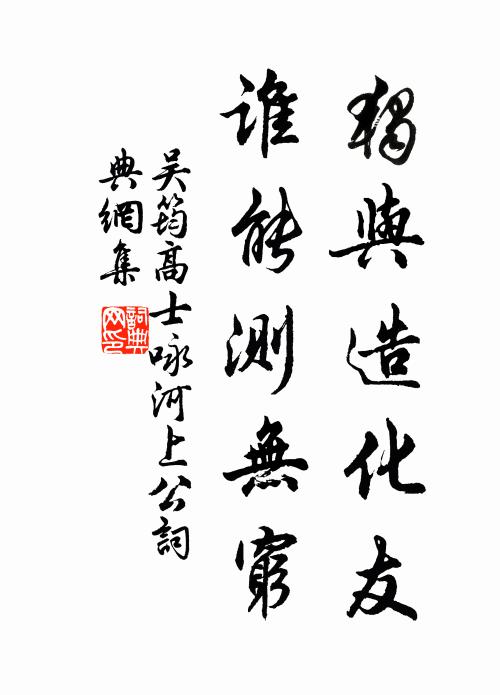 獨與造化友
誰能測無窮
吴筠高士咏河上公詞
典網集
詞典
网印